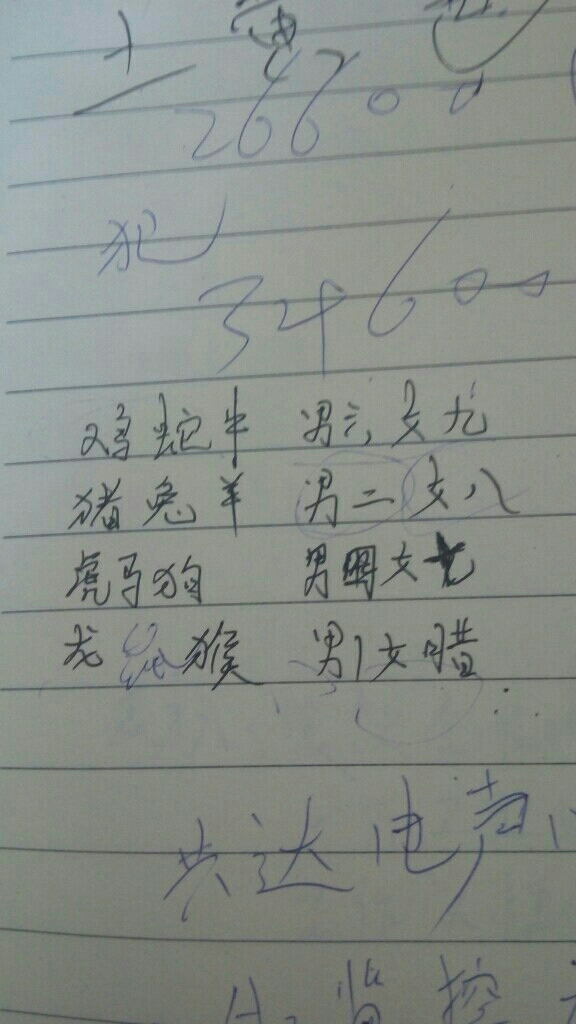 26600
犯
34600
鸡蛇牛 男六女九
猪兔羊 男二女八
虎马狗 男四女七
龙鼠猴 男1女腊
共达电声
监控